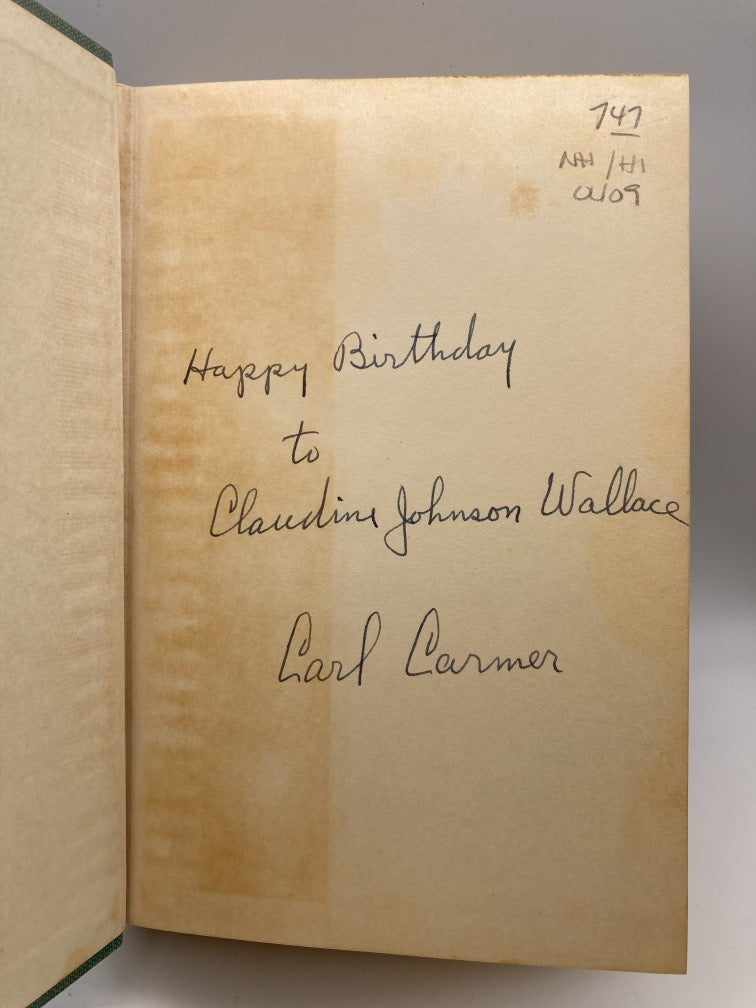 747
Happy Birthday
to
Claudine Johnson Wallace
Carl Carmer